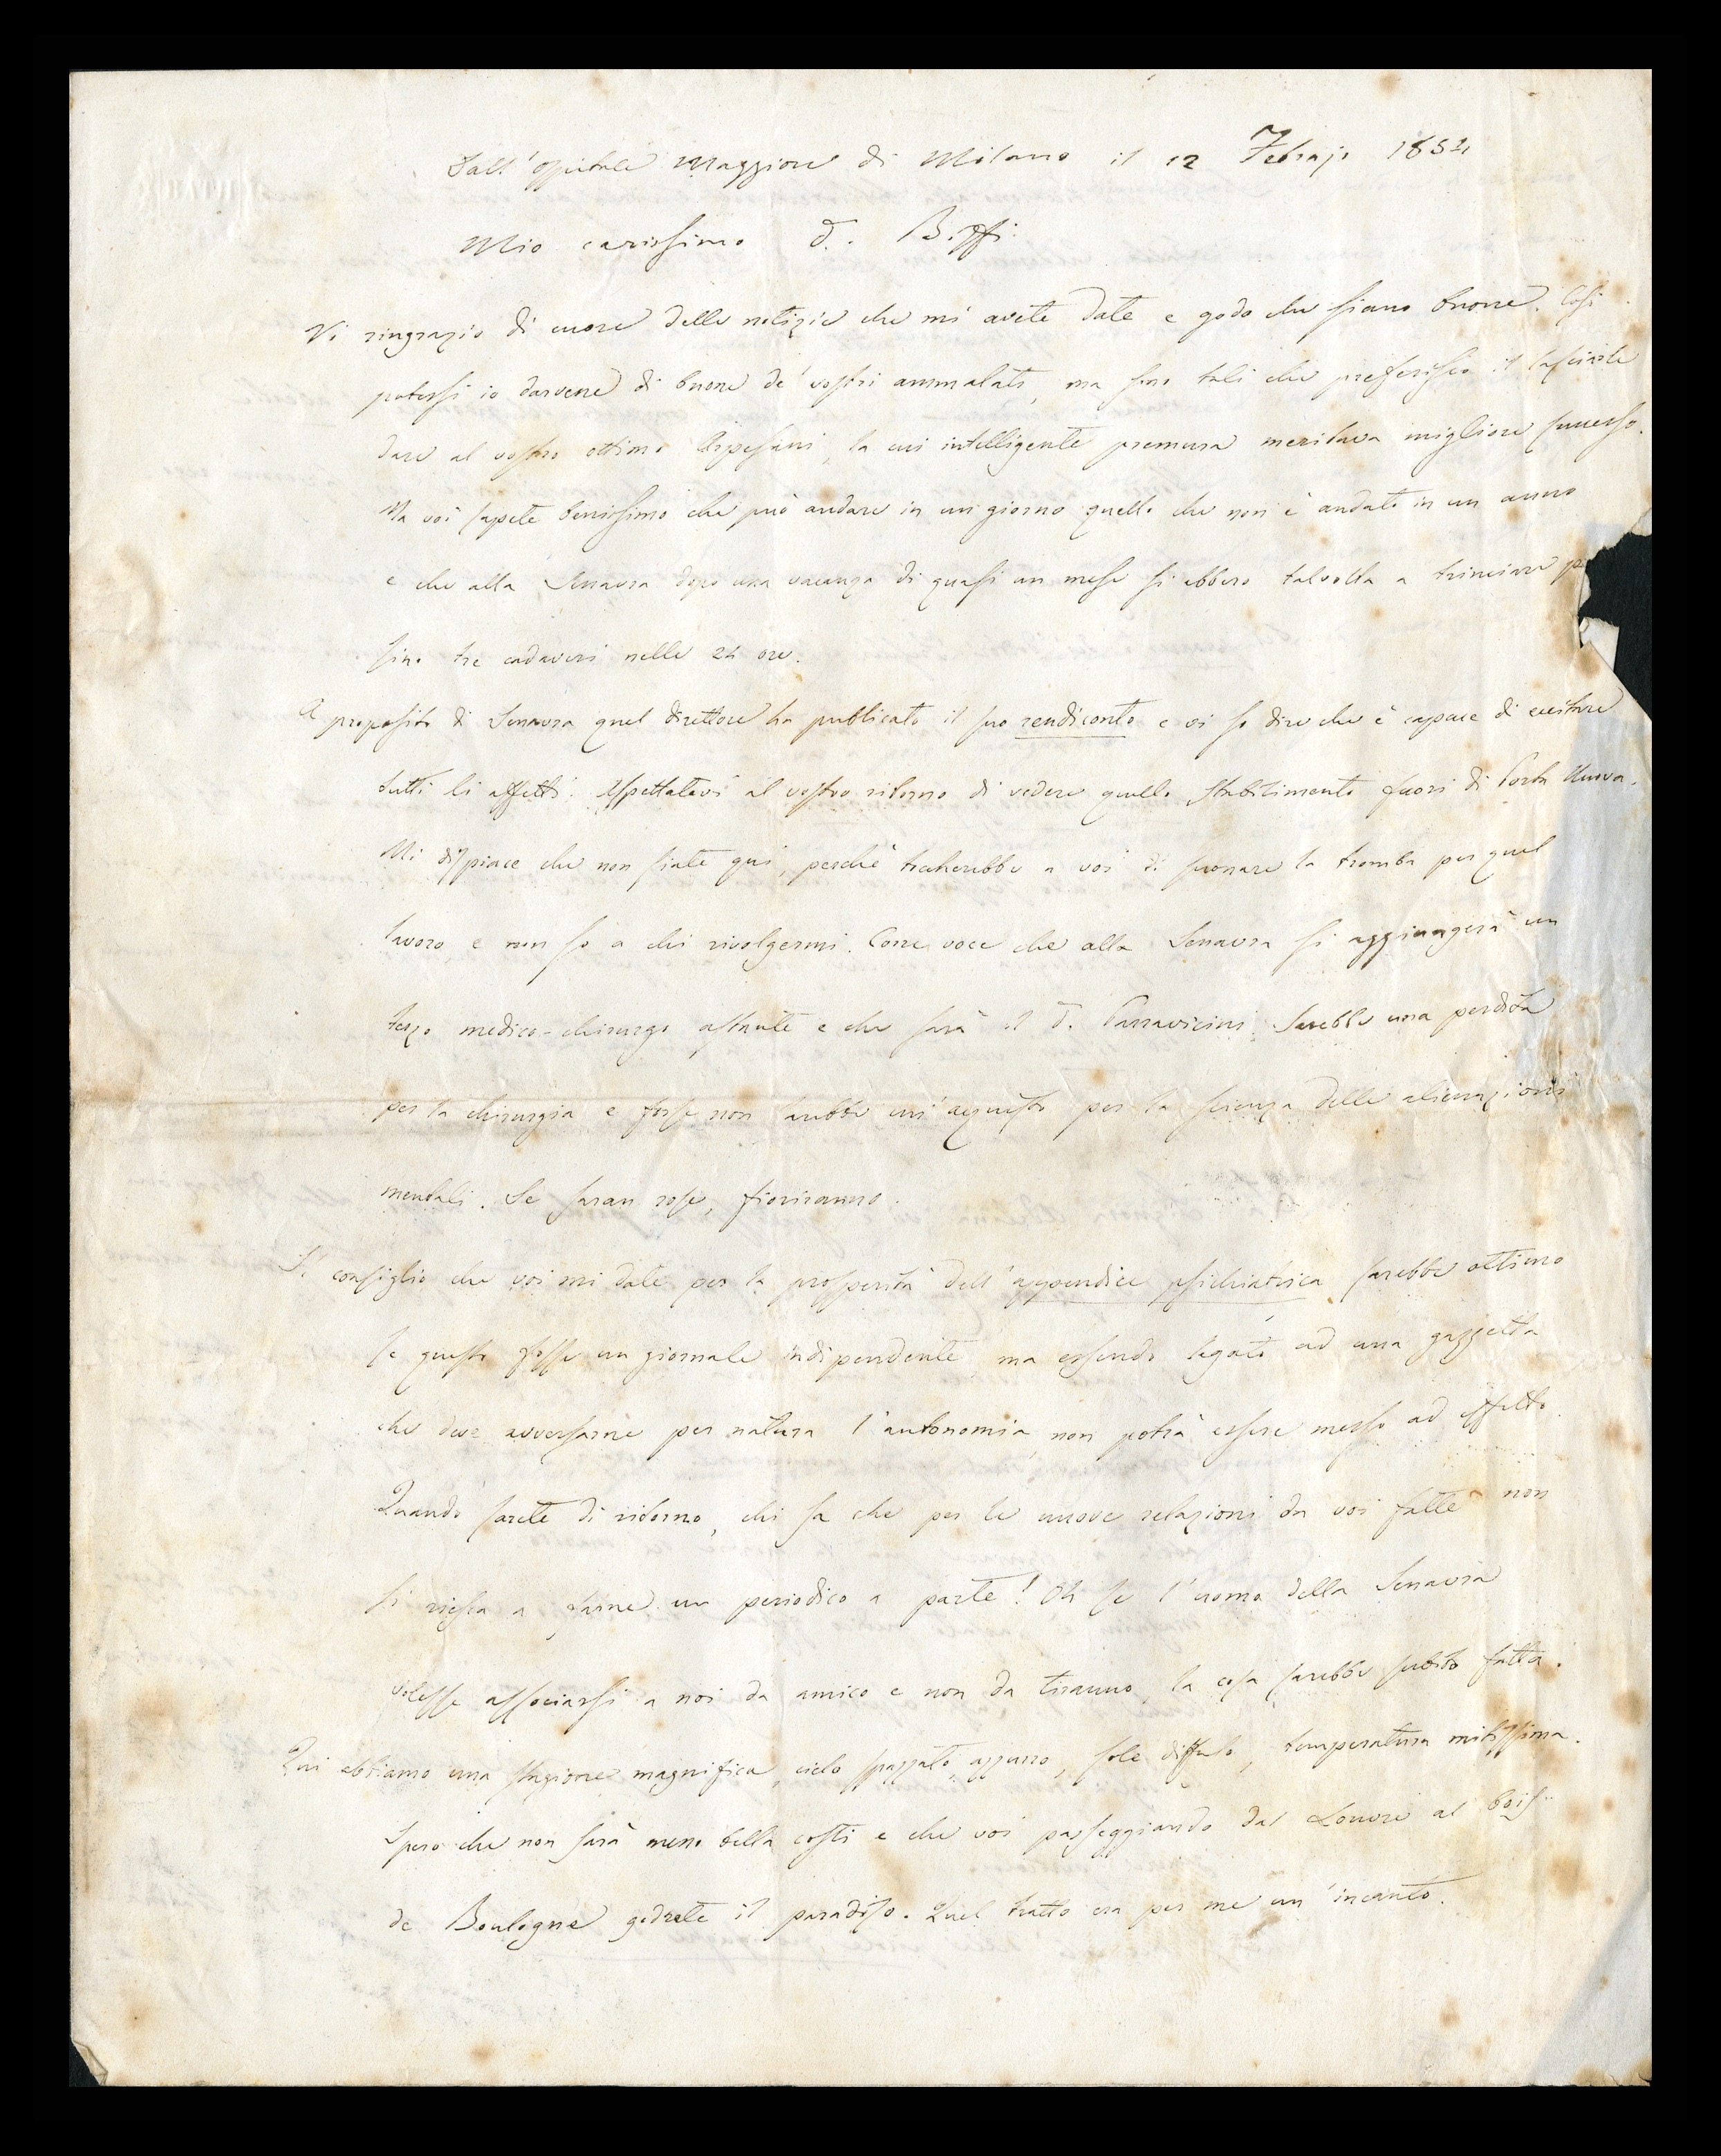 Dall'Ospitale Maggiore di Milano il 12 Febrajo 1854
Mio carissimo D. Biffi
Vi ringrazio di cuore delle notizie che mi avete date e godo che siano buone. Così
potessi io darvene di buone de' vostri ammalati, ma sono tali che preferisco il lasciarle
dare al vostro ottimo la cui intelligente premura meritava migliore successo.
Ma voi sapete benissimo che può andare in un giorno quello che non è andato in un anno
e che alla Senavra dopo una vacanza di quasi un mese si ebbero talvolta a trinciare
sino tre cadaveri nelle 24 ore.
A proposito di Senavra quel direttore ha publicato il suo rendiconto e vi so dire che è capace di eccitare
tutti li affetti. Aspettatevi al vostro ritorno di vedere quello stabilimento fuori di Porta Nuova.
Mi dispiace che non siate qui, perchè toccherebbe a voi di suonare la tromba per quel
lavoro e non so a chi rivolgermi. Corre voce che alla Senavra si aggiungerà un
terzo medico-chirurgo astante e che sarà il D. Parravicini. Sarebbe una perdita
per la chirurgia e forse non sarebbe un'acquisto per la scienza delle alienazioni
mentali. Se saran rose, fioriranno.
Il consiglio che voi mi date per la prosperità dell'appendice psichiatrica sarebbe ottimo
se questo fosse un giornale indipendente ma essendo legato ad una gazzetta
che deve avversarne per natura l'autonomia, non potrà essere messo ad effetto.
Quando sarete di ritorno, chi sa che per le nuove relazioni da voi fatte non
si riesca a farne un periodico a parte! Oh se l'uomo della Senavra
volesse associarsi a noi da amico e non da tiranno, la cosa sarebbe subito fatta.
Qui abbiamo una stagione magnifica, cielo spazzato, azzurro, sole diffuso, temperatura mitissima.
Spero che non sarà meno bella costì e che voi passeggiando dal Louvre al bois
de Boulogne godrete il paradiso. Quel tratto era per me un'incanto.